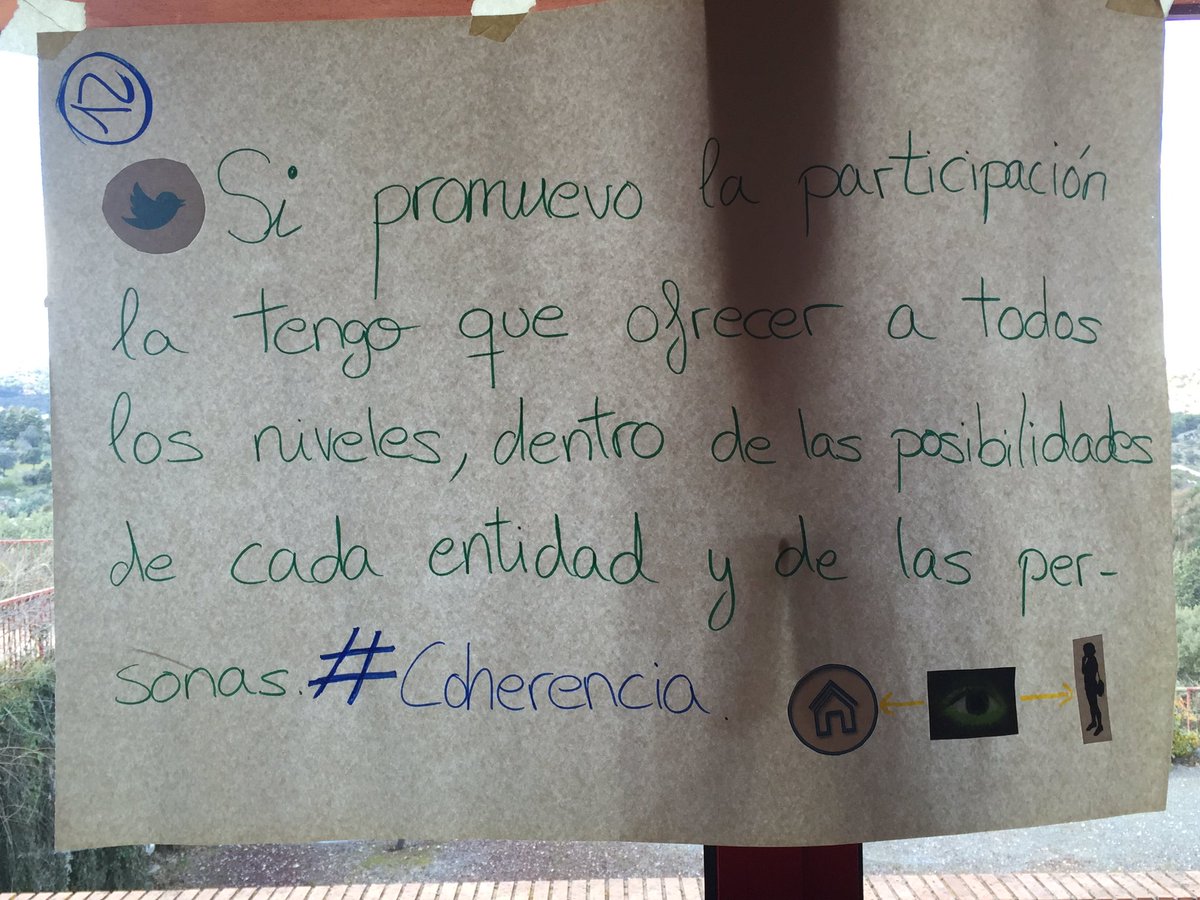 12
Si promuevo la participación
la tengo que ofrecer a todos
los niveles, dentro de las posibilidades
de cada entidad y de las per-
sonas. #Coherencia.